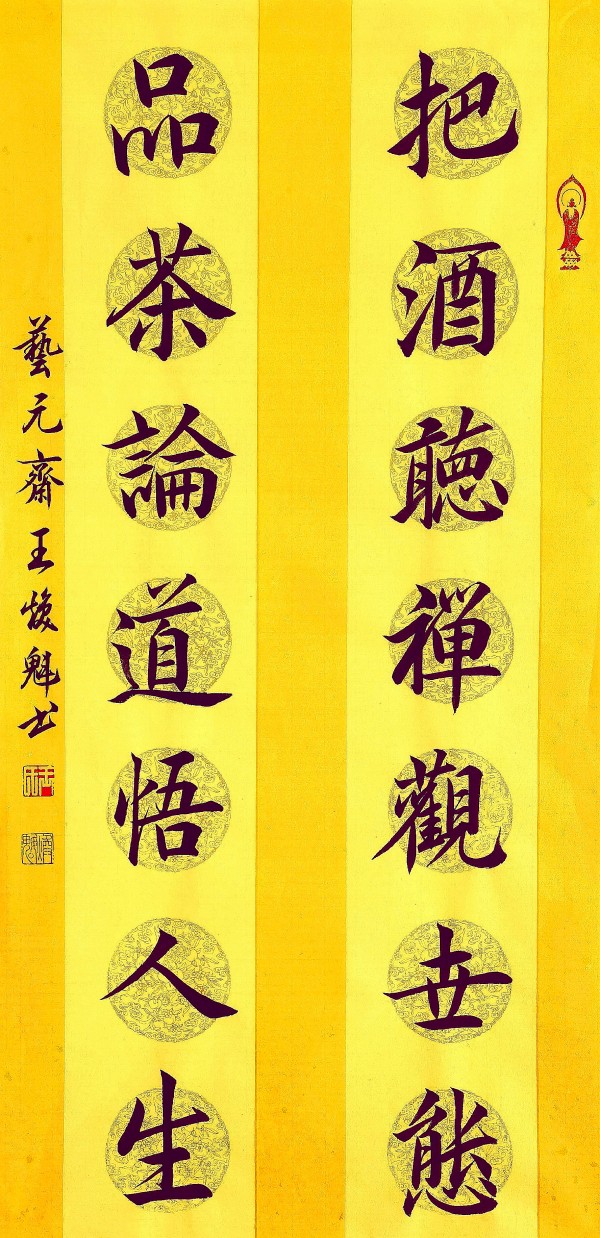 把酒聽禪觀世態
品茶論道悟人生
藝元齋王焕魁书